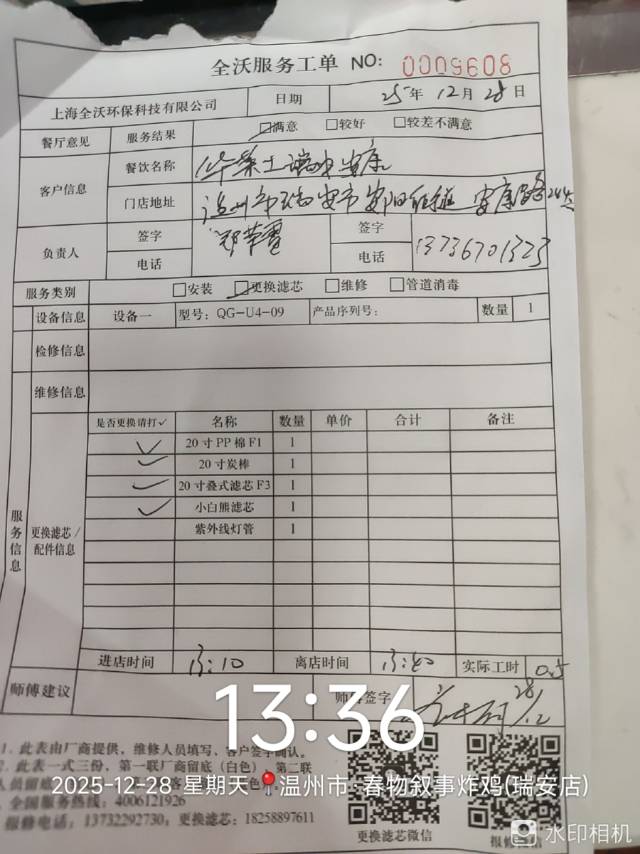 全沃服务工单 NO: 0005608
上海全沃环保科技有限公司 日期 25年12月28日
餐厅意见 服务结果 ☑满意 □较好 □较差不满意
客户信息 餐饮名称 华莱士瑞安安康
门店地址 温州市瑞安市安阳街道安康路
负责人 签字 签字
电话 电话 13736701323
服务类别 □安装 ☑更换滤芯 □维修 □管道消毒
设备信息 设备一 型号: QG-U4-09 产品序列号: 数量 1
检修信息
维修信息
服务信息 更换滤芯/配件信息
是否更换请打✓ 名称 数量 单价 合计 备注
✓ 20寸PP棉F1 1
✓ 20寸炭棒 1
✓ 20寸叠式滤芯F3 1
✓ 小白熊滤芯 1
紫外线灯管 1
进店时间 13:10 离店时间 13:40 实际工时 0.5
师傅建议 签字
13:36
1. 此表由厂商提供，维修人员填写，客户签字确认。
此表一式三份，第一联厂商留底（白色），第二联
2025-12-28 星期天 温州市·春物叙事炸鸡(瑞安店)
全国服务热线: 4006121926
报修电话: 13732292730; 更换滤芯: 18258897611
更换滤芯微信 报修微信
水印相机